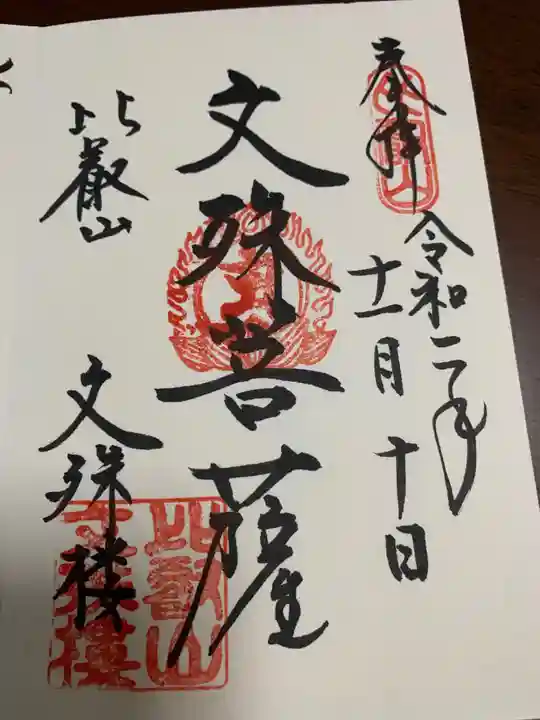 奉拝
令和二年
十一月十日
文殊菩薩
比叡山
文殊楼
比叡山
文殊楼